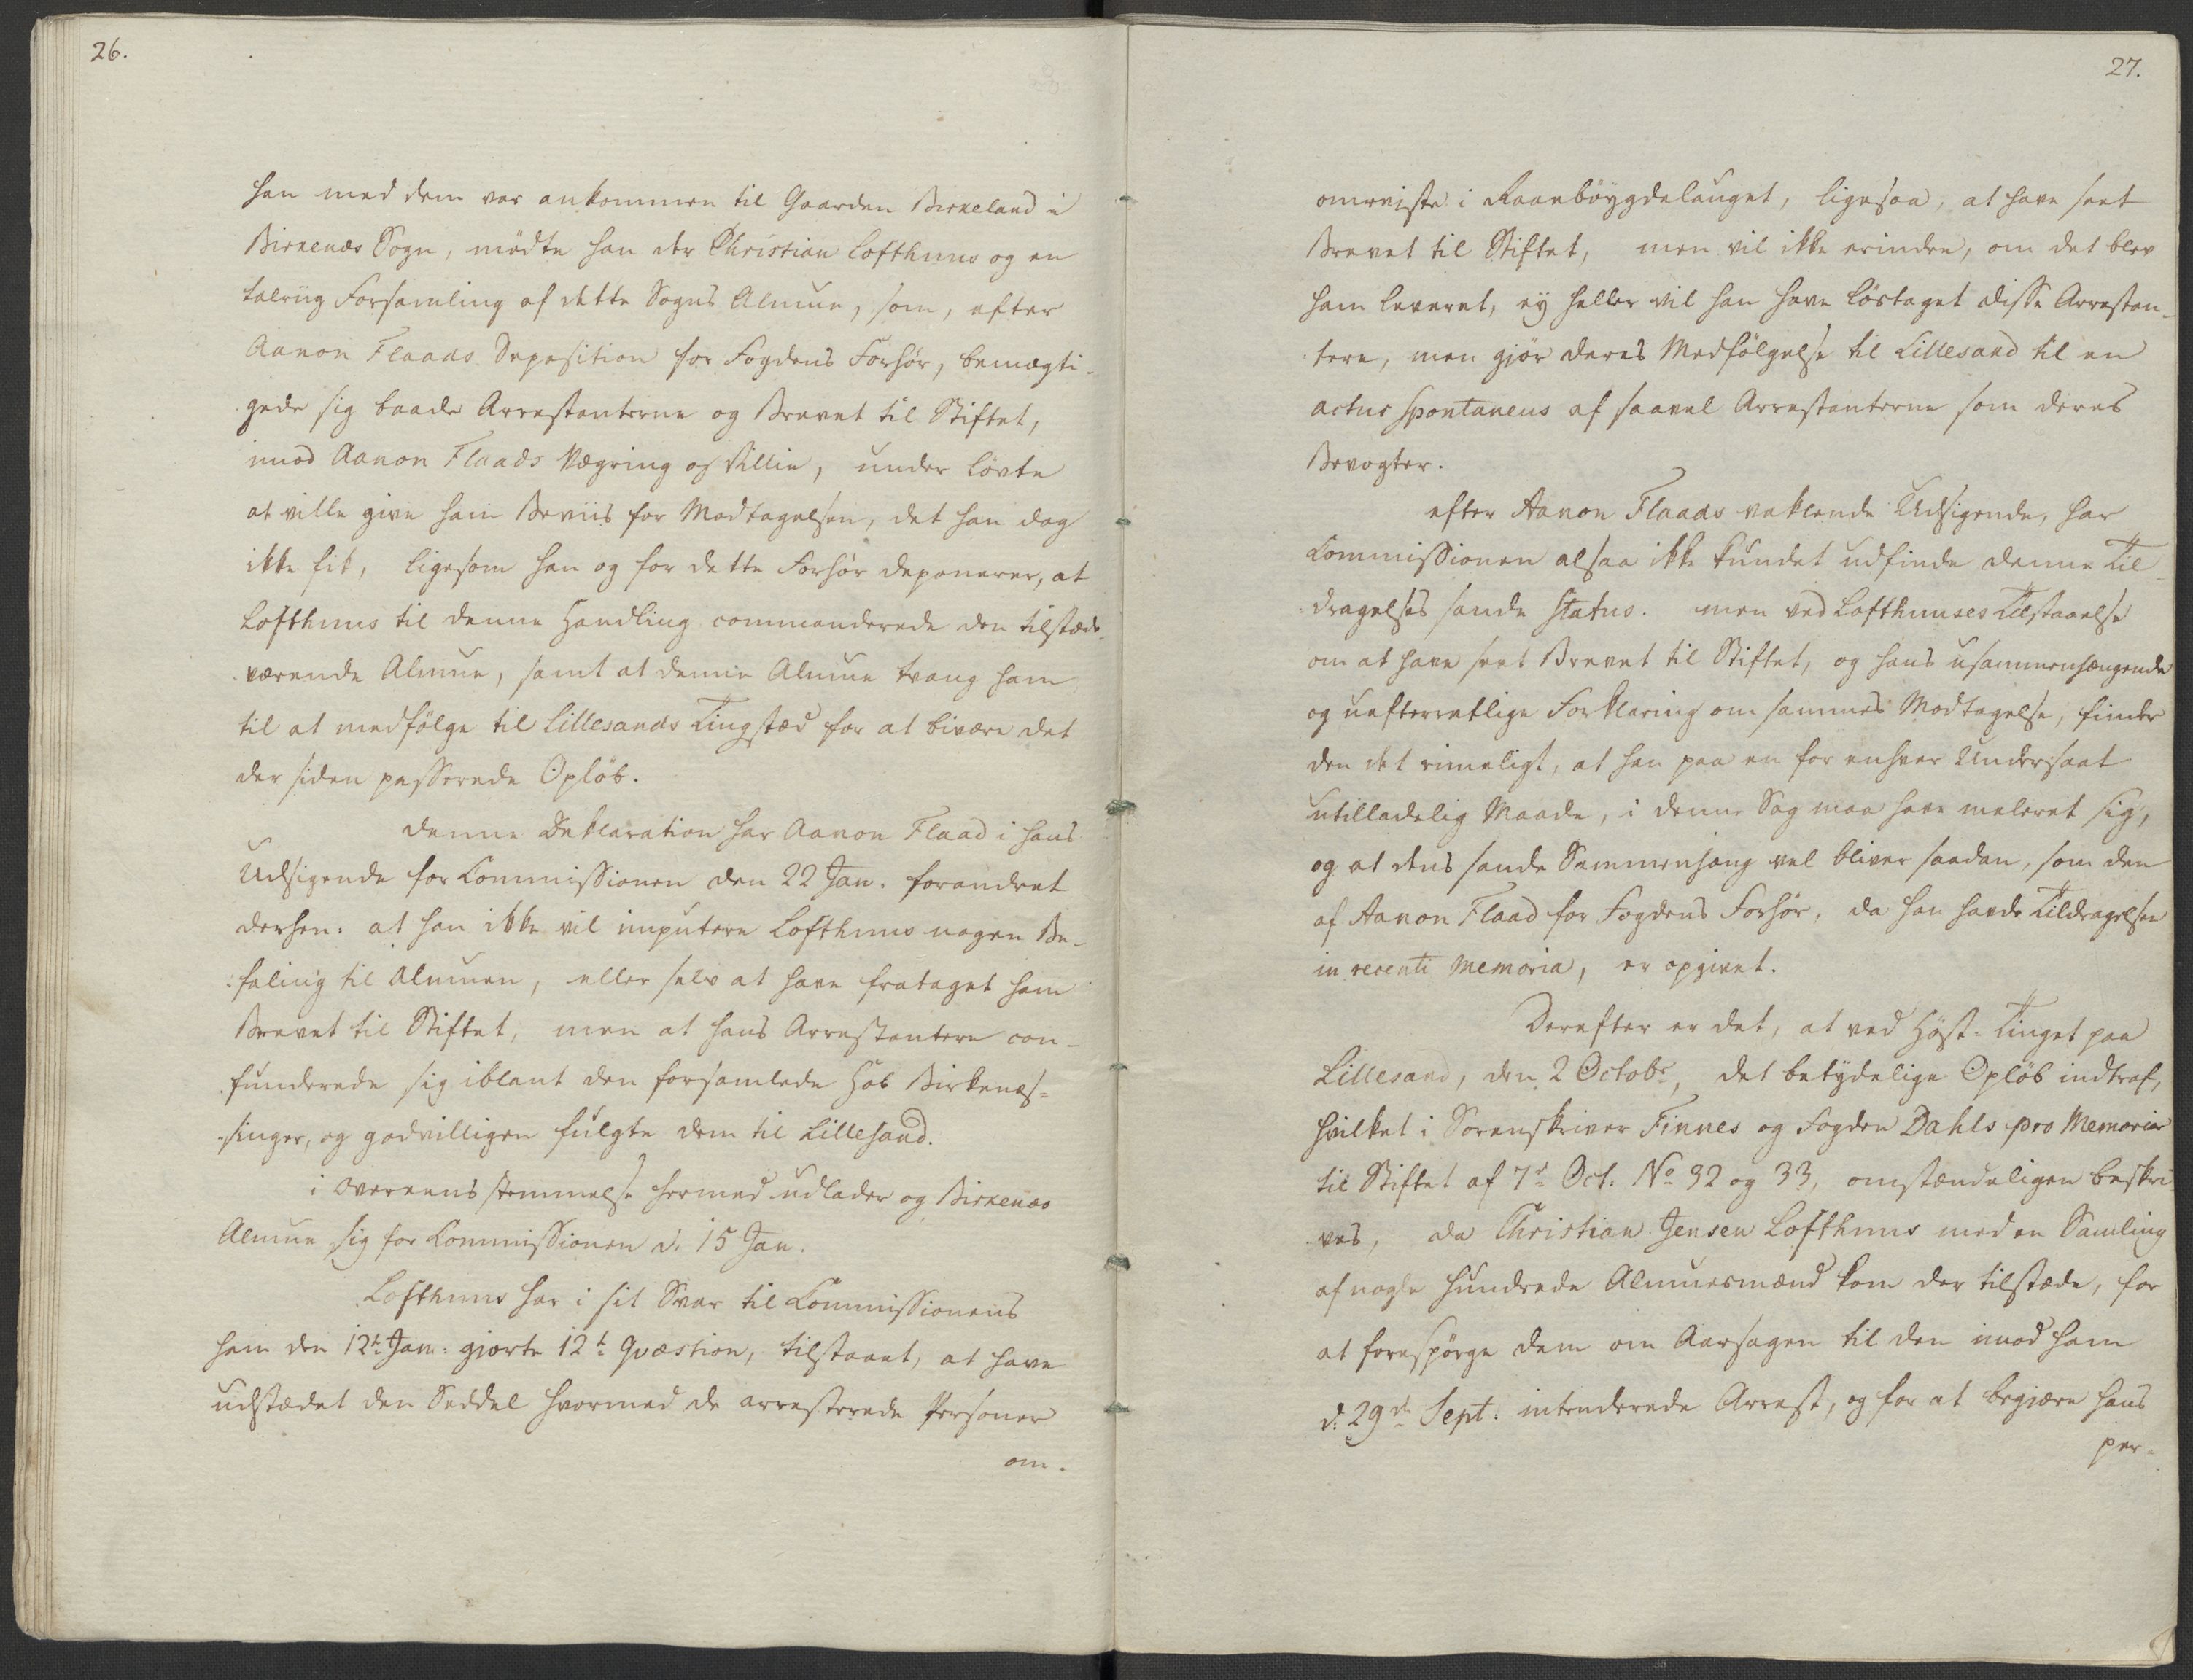 26.
han med dem var ankommen til Gaarden Birkeland i
Birkenæs Sogn, mödte han der Christian Lofthuus og en
talriig Forsamling af dette Sogns Almue, som, efter
Aanon Flaads Deposition for Fogdens Forhör, bemægti-
gede sig baade Arrestanterne og Brevet til Stiftet,
imod Aanon Flaads Vægring og Villie, under Lövte
at ville give ham Beviis for Modtagelsen, det han dog
ikke fik, ligesom han og for dette Forhör deponerer, at
Lofthuus til denne Handling commanderede den tilstæde-
værende Almue, samt at denne Almue tvang ham
til at medfölge til Lillesands Tingstæd for at bivære det
der siden passerede Oplöb.
Denne Deklaration har Aanon Flaad i hans
Udsigende for Commissionen den 22 Jan. forandret
derhen: at han ikke vil imputere Lofthuus nogen Be-
faling til Almuen, eller selv at have frataget ham
Brevet til Stiftet, men at hans Arrestantere con-
funderede sig iblant den forsamlede Hob Birkenæs-
singer, og godvilligen fulgte dem til Lillesand.
i Overeensstemmelse hermed udlader og Birkenæs
Almue sig for Commissionen d. 15 Jan.
Lofthuus har i sit Svar til Commissionens
ham den 12t Jan: giorte 12t Qvæstion, tilstaaet, at have
udstædet den Seddel hvormed de arresterede Personer
om-
27.
omreiste i Raanböygdelauget, ligesaa, at have seet
Brevet til Stiftet, men vil ikke erindre, om det blev
ham leveret, ej heller vil han have löstaget disse Arrestan-
tere, men gjör deres Medfölgelse til Lillesand til en
actus spontaneus af saavel Arrestanterne som deres
Bevogter.
efter Aanon Flaads vaklende Udsigende, har
Commissionen altsaa ikke kundet udfinde denne Til-
dragelses sande status. men ved Lofthuuses Tilstaaelse
om at have seet Brevet til Stiftet, og hans usammenhængende
og uefterretlige Forklaring om sammes Modtagelse, finder
den det rimeligt, at han paa en for enhver Undersaat
utilladelig Maade, i denne Sag maa have meleret sig,
og at dens sande Sammenhæng vel bliver saadan, som den
af Aanon Flaad for Fogdens Forhör, da han havde Tildragelsen
in recenti memoria, er opgivet.
Derefter er det, at ved Höst-Tinget paa
Lillesand, den 2 Octobr, det betydelige Oplöb indtraf,
hvilket i Sorenskriver Finnes og Fogden Dahls pro Memoria
til Stiftet af 7d Oct. No 32 og 33, omstændeligen beskri-
ves, da Christian Jensen Lofthuus med en Samling
af nogle hundrede Almuesmænd kom der tilstæde, for
at forespörge dem om Aarsagen til den imod ham
d: 29de Sept: intenderede Arrest, og for at begjære hans
per-